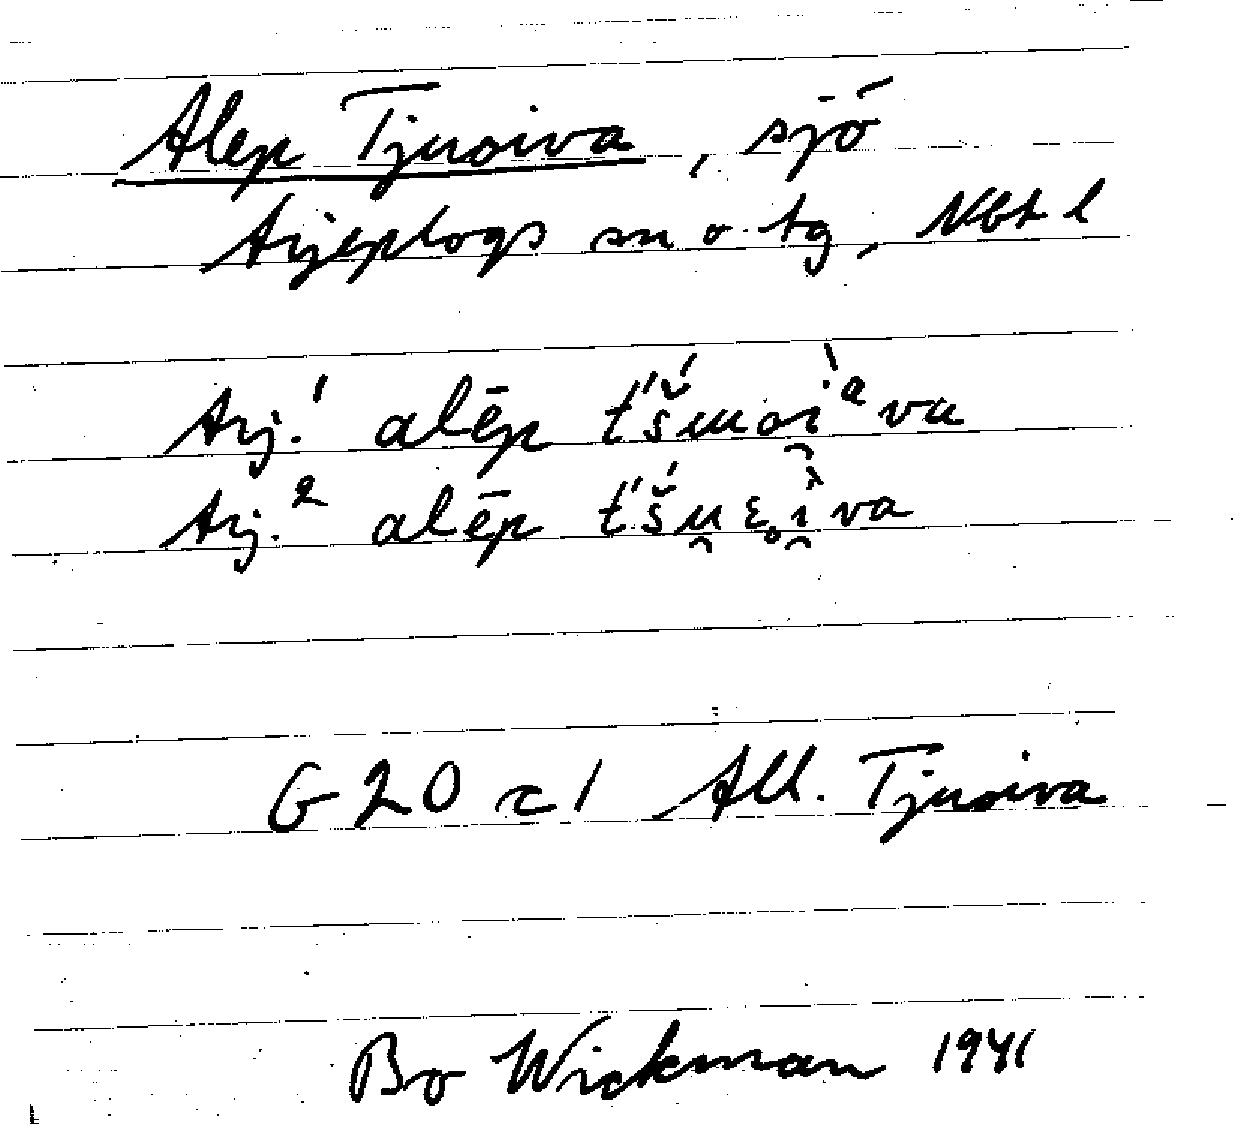 Alep Tjuoiva, sjö
Arjeplogs sn o. tg, Nbt l
Arj.¹ alēp t́'š́uoì̯ᵃva
Arj.² alēp t́'š́u̯ɛ̥ì̯va
G 20 c 1 All. Tjuoiva
Bo Wickman 1941